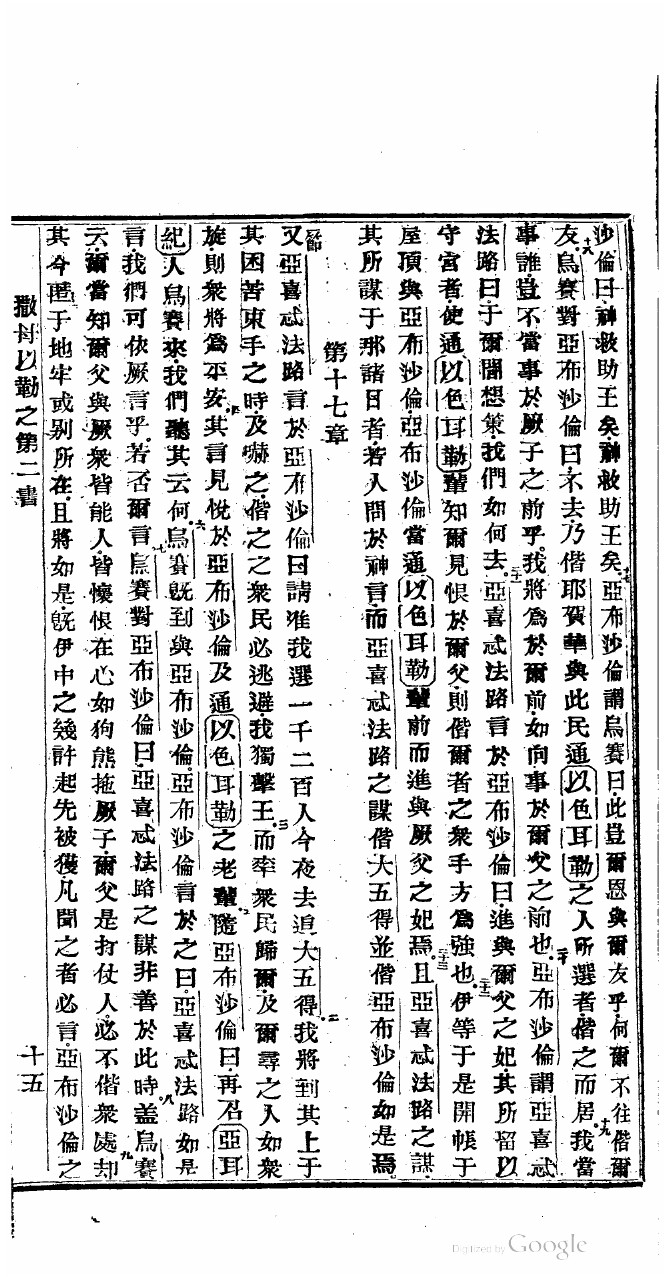 沙倫曰神救助王矣神救助王矣十七亞布沙倫謂烏賽曰此豈爾恩與爾友乎何爾不往偕爾
友十八烏賽對亞布沙倫曰不去乃偕耶賀華與此民通以色耳勒之人所選者偕之而居十九我當
事誰豈不當事於厥子之前乎我將爲於爾前如向事於爾父之前也二十亞布沙倫謂亞喜忒
法路曰于爾間想策我們如何去二十一亞喜忒法路言於亞布沙倫曰進與爾父之妃其所留以
守宮者使通以色耳勒輩知爾見恨於爾父則偕爾者之衆手方爲強也二十二伊等于是開帳于
屋頂與亞布沙倫亞布沙倫當通以色耳勒輩前而進與厥父之妃焉二十三且亞喜忒法路之謀
其所謀于那諸日者若人問於神言而亞喜忒法路之謀偕大五得並偕亞布沙倫如是焉
第十七章
一節又亞喜忒法路言於亞布沙倫曰請准我選一千二百人今夜去追大五得二我將到其上于
其困苦束手之時及嚇之偕之之衆民必逃避我獨擊王三而率衆民歸爾及爾尋之人如衆
旋則衆將爲平安四其言見悅於亞布沙倫及通以色耳勒之老輩五隨亞布沙倫曰再召亞耳
紀人烏賽來我們聽其云何六烏賽旣到與亞布沙倫亞布沙倫言於之曰亞喜忒法路如是
言我們可依厥言乎若否爾言七烏賽對亞布沙倫曰亞喜忒法路之謀非善於此時八盖烏賽
云爾當知爾父與厥衆皆能人皆懷恨在心如狗熊拖厥子爾父是打仗人必不偕衆處却九
其今匿于地牢或别所在且將如是旣伊中之幾許起先被獲凡聞之者必言亞布沙倫之
撒母以勒之第二書
十五
Digitized by Google